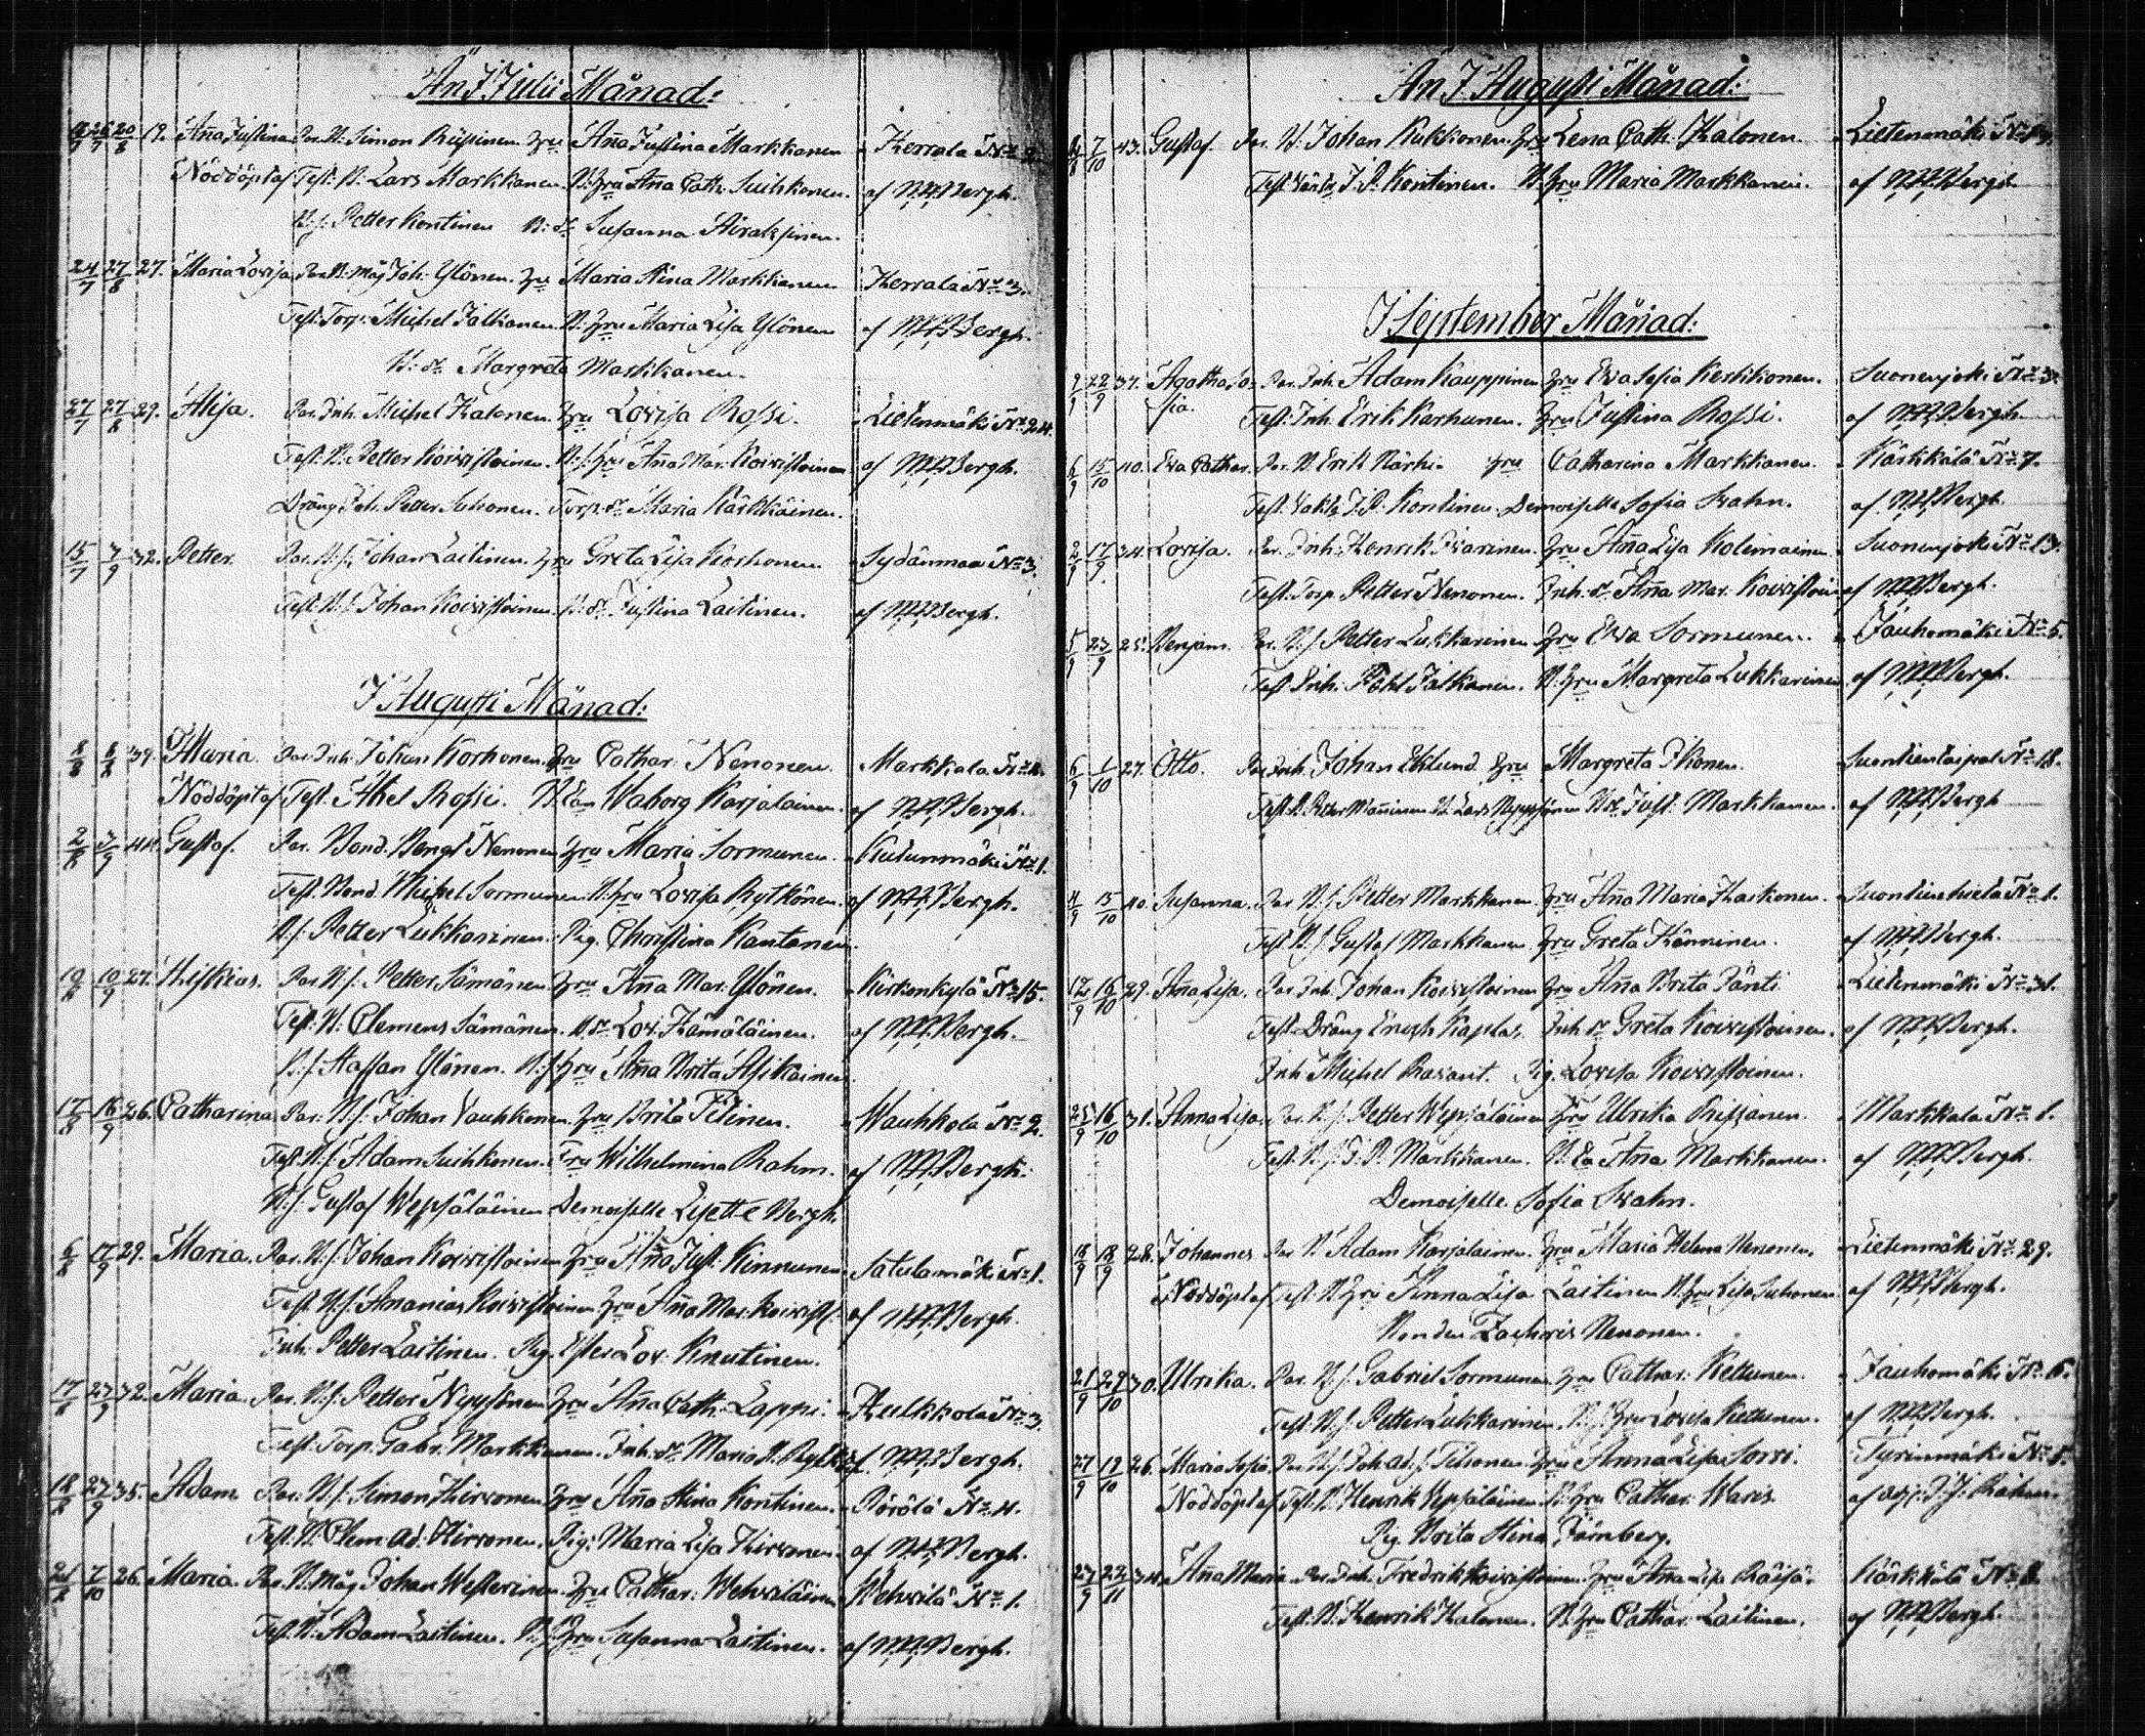 An I Julii Månad:
19. Aña Justina Par. B. Simon Rissinen hru Aña Justina Markkanen Kerrala No 2.
Nöddöpt af Test. B. Lars Markkanen. B. hru Aña Cath. Suihkonen. af N.H.Bergh.
B.s. Petter Kontinen B. dr Susanna Airaksinen.
24/7 27/8 27. Maria Lovisa Par. B. måg Joh. Ylönen. hru Maria Stina Markkanen Kerrala No 3.
Test. Torp. Michel Jalkanen. B. hru Maria Lisa Ylönen af N.H.Bergh.
B. dr Margreta Markkanen.
27/7 27/8 29. Alisa. Par. Inh. Michel Halonen. hru Lovisa Rossi. Lietenmäki No 24.
Test. B. Petter Koivistoinen. B.s. hru Aña Mar. Koivistoinen af N.H.Bergh.
Dräng Joh. Petter Suhonen. Torp. dr Maria Kärkkäinen.
15/7 3/9 32. Petter. Par. B.s. Johan Laitinen. hru Greta Lisa Korhonen. Sydänmaa No 3.
Test. B.s. Johan Koivistoinen. B. dr Justina Laitinen. af N.H.Bergh.
I Augusti Månad:
8/8 8/8 39. Maria. Par. Inh. Johan Korhonen. hru Cathar. Nenonen. Markkala No 4.
Nöddöpt af Test. Abel Rossi. B. Ea Waborg Karjalainen. af N.H.Bergh.
2/8 3/9 44. Gustaf. Par. Bond. Bengt Nenonen hru Maria Sormunen. Kutunmäki No 1.
Test. Bond. Michel Sormunen. B. hru Lovisa Rytkönen. af N.H.Bergh.
B.s. Petter Lukkarinen. Pig. Christina Kantanen.
10/8 10/9 27. Hiskias. Par. B.s. Petter Sämänen hru Aña Mar. Ylönen. Kirkonkylä No 15.
Test. B. Clemens Sämänen. B. dr Lov. Hämäläinen. af N.H.Bergh.
B.s. Staffan Ylönen. B.s. hru Aña Brita Asikainen.
17/8 16/9 26. Catharina. Par. B.s. Johan Vauhkonen. hru Brita Tilinen. Wauhkola No 2.
Test. B.s. Adam Suihkonen. Fru Wilhelmina Rahm. af N.H.Bergh.
B.s. Gustaf Wepsäläinen Demoiselle Lisette Bergh.
6/8 17/9 29. Maria. Par. B.s. Johan Koivistoinen hru Aña Just. Kinnunen. Satulamäki No 1.
Test. B.s. Ananias Koivistoinen. hru Aña Mar. Koivist. af N.H.Bergh.
Inh. Petter Laitinen. Pig. Ester Lov. Knutinen.
17/8 23/9 32. Maria. Par. B.s. Petter Nyyssönen hru Aña Cath. Lappi. Hulkkola No 3.
Test. Torp. Gabr. Markkanen. Inh. dr Maria af N.H.Bergh.
18/8 27/9 35. Adam Par. B.s. Simon Hirvonen hru Aña Stina Kontinen. Pörölä No 4.
Test. B. Clem. Ad. Hirvonen. Pig. Maria Lisa Hirvonen. af N.H.Bergh.
21/8 7/10 26. Maria. Par. B. måg Johan Westerinen. hru Cathar. Wehviläinen Wehvilä No 1.
Test. B. Adam Laitinen. B.s. hru Susanna Laitinen. af N.H.Bergh.
An I Augusti Månad:
7/10 43. Gustaf. Par. B. Johan Kukkonen. hru Lena Cath. Halonen. Lietenmäki
Test. J.P. Kontinen. B. hru Maria Markkanen. af N.H.Bergh.
I September Månad:
9/9 22/9 37. Agatha So- Par. Inh. Adam Kauppinen hru Eva Sofia Kerkkonen. Suonenjoki No 3.
fia. Test. Inh. Erik Karhunen. hru Justina Rossi. af N.H.Bergh.
6/9 15/10 40. Eva Cathar. Par. B. Erik Närhi hru Catharina Markkanen. Kärkkälä No 7.
Test. J.P. Kontinen. Demoiselle Sofia Svahn. af N.H.Bergh.
2/9 17/9 34. Lovisa. Par. Inh. Henrik Ivarinen. hru Aña Lisa Kolimainen. Suonenjoki No 13.
Test. Torp. Petter Nenonen. Inh. dr Aña Mar. Koivistoin af N.H.Bergh.
5/9 23/9 25. Benjam. Par. B.s. Petter Lukkarinen hru Eva Sormunen. Jauhomäki No 5.
Test. Inh. Påhl Jalkanen. B. hru Margreta Lukkarinen af N.H.Bergh.
6/9 1/10 27. Otto. Par. Inh. Johan Eklund. hru Margreta Ikonen. Suontientaipal No 18.
Test. B. Petter Mañinen B. Lars Nyyssönen B. dr Just. Markkanen. af N.H.Bergh
4/9 15/10 40. Susanna. Par. B.s. Petter Markkanen. hru Aña Maria Haikonen. No 1.
Test. B.s. Gustaf Markkanen. hru Greta Hänninen. af N.H.Bergh.
12/9 16/10 29. Aña Lisa. Par. Inh. Johan Koivistoinen hru Aña Brita Jänti Lietenmäki No 31.
Test. Dräng Enoch Kaplas. Inh. dr Greta Koivistoinen. af N.H.Bergh.
Inh. Michel Ravant. Pig. Lovisa Koivistoinen.
25/9 16/10 31. Anna Lisa. Par. B.s. Petter Wepsäläinen hru Ulrika Rissanen. Markkala No 1.
Test. B.s. P. Markkanen. B. Ea Aña Markkanen. af N.H.Bergh.
Demoiselle Sofia Svahn.
18/9 18/9 28. Johannes Par. B. Adam Karjalainen. hru Maria Helena Nenonen. Lietenmäki No 29.
Nöddöpt af Test. B. hru Anna Lisa Laitinen B. hru Lisa Suhonen. af N.H.Bergh.
Bonden Zachris Nenonen.
21/9 29/10 30. Ulrika. Par. B.s. Gabriel Sormunen hru Cathar. Kettunen. Jauhomäki No 6.
Test. B.s. Petter Lukkarinen. B.s. hru Lovisa Kettunen. af N.H.Bergh.
27/9 19/10 26. Maria Sofia. Par. B.s. Joh. Ad.s. Tihonen. hru Anna Lisa Sorri. Tyrinmäki No 1.
Nöddöpt af Test. B. Henrik Wepsäläinen. B. hru Cathar. Waris.
Pig. Brita Stina Färnberg.
34. Aña Maria Par. Inh. Fredrik Koivistoinen. hru Aña Lisa Räisä- Kärkkälä
Test. B. Henrik Halonen. B. hru Cathar. Laitinen. af N.H.Bergh.